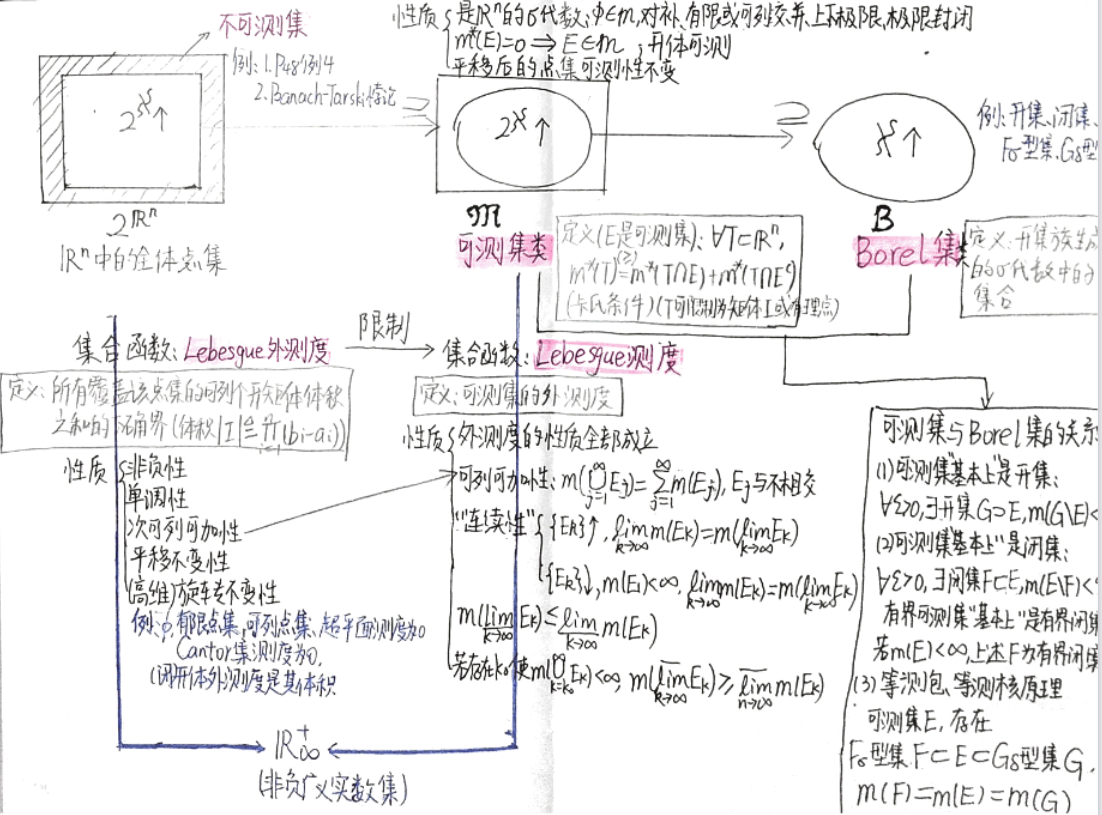 不可测集
例: 1.P48例4
2.Banach-Tarski悖论
2^ℵ个
2^ℝⁿ
ℝⁿ中的全体点集
性质 是ℝⁿ的σ代数: φ∈m, 对补、有限或可列交、并、上下极限、极限封闭
m*(E)=0 ⇒ E∈m ; 开体可测
平移后的点集可测性不变
⊃
2^ℵ个
𝔐
可测集类
定义(E是可测集): ∀T⊂ℝⁿ,
m*(T)(≥)=m*(T∩E)+m*(T∩Eᶜ)
(卡氏条件)(T可限制为矩体I或有理点)
⊃
ℵ个
B
Borel集类
例: 开集、闭集、
Fσ型集、Gδ型
定义: 开集族生成
的σ代数中的
集合
集合函数: Lebesgue外测度
限制
集合函数: Lebesgue测度
定义: 所有覆盖该点集的可列个开矩体体积
之和的下确界(体积|I|≜∏(bi-ai))
i=1
性质 非负性
单调性
次可列可加性
平移不变性
(高维)旋转不变性
例: φ、有限点集、可列点集、超平面测度为0
Cantor集测度为0,
(闭)开体外测度是其体积
定义: 可测集的外测度
性质 外测度的性质全部成立
可列可加性: m(⋃_{j=1}^∞ Ej)=∑_{j=1}^∞ m(Ej), Ej互不相交
"连续性" {Ek}↑, lim_{k→∞} m(Ek)=m(lim_{k→∞} Ek)
{Ek}↓, m(E1)<∞, lim_{k→∞} m(Ek)=m(lim_{k→∞} Ek)
m(lim̲_{k→∞} Ek)≤lim̲_{k→∞} m(Ek)
若存在k₀使m(⋃_{k=k₀}^∞ Ek)<∞, m(lim̅_{k→∞} Ek)≥lim̅_{n→∞} m(Ek)
ℝ⁺∞
(非负广义实数集)
可测集与Borel集的关系
(1)可测集"基本上"是开集:
∀ε>0,∃开集G⊃E, m(G\E)<
(2)可测集"基本上"是闭集:
∀ε>0,∃闭集F⊂E, m(E\F)<
有界可测集"基本上"是有界闭集
若m(E)<∞, 上述F为有界闭集
(3)等测包、等测核原理
可测集E, 存在
Fσ型集F⊂E⊂Gδ型集G,
m(F)=m(E)=m(G)